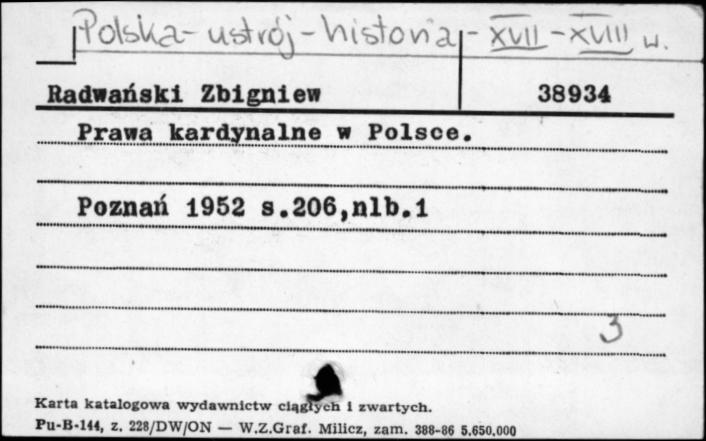 Polska - ustrój - historia - XVII - XVIII w.
Radwański Zbigniew 38934
Prawa kardynalne w Polsce.
Poznań 1952 s.206,nlb.1
3
Karta katalogowa wydawnictw ciągłych i zwartych.
Pu-B-144, z. 228/DW/ON — W.Z.Graf. Milicz, zam. 388-86 5.650.000